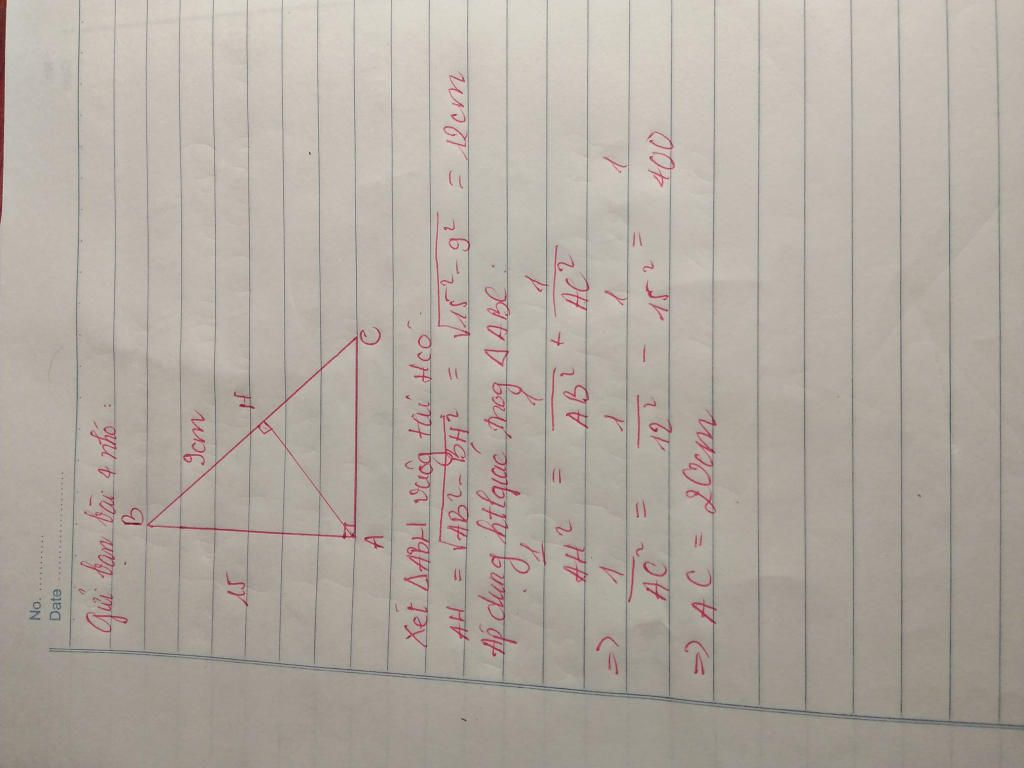 No. ..............
Date ......................
Gửi bạn bài 4 nhó :
B
15
9cm
H
A
C
Xét ΔABH vuôg tại H có:
AH = √(AB² - BH²) = √(15² - 9²) = 12cm
Áp dụng htlgiác trog ΔABC:
1/AH² = 1/AB² + 1/AC²
=> 1/AC² = 1/12² - 1/15² = 1/400
=> AC = 20cm